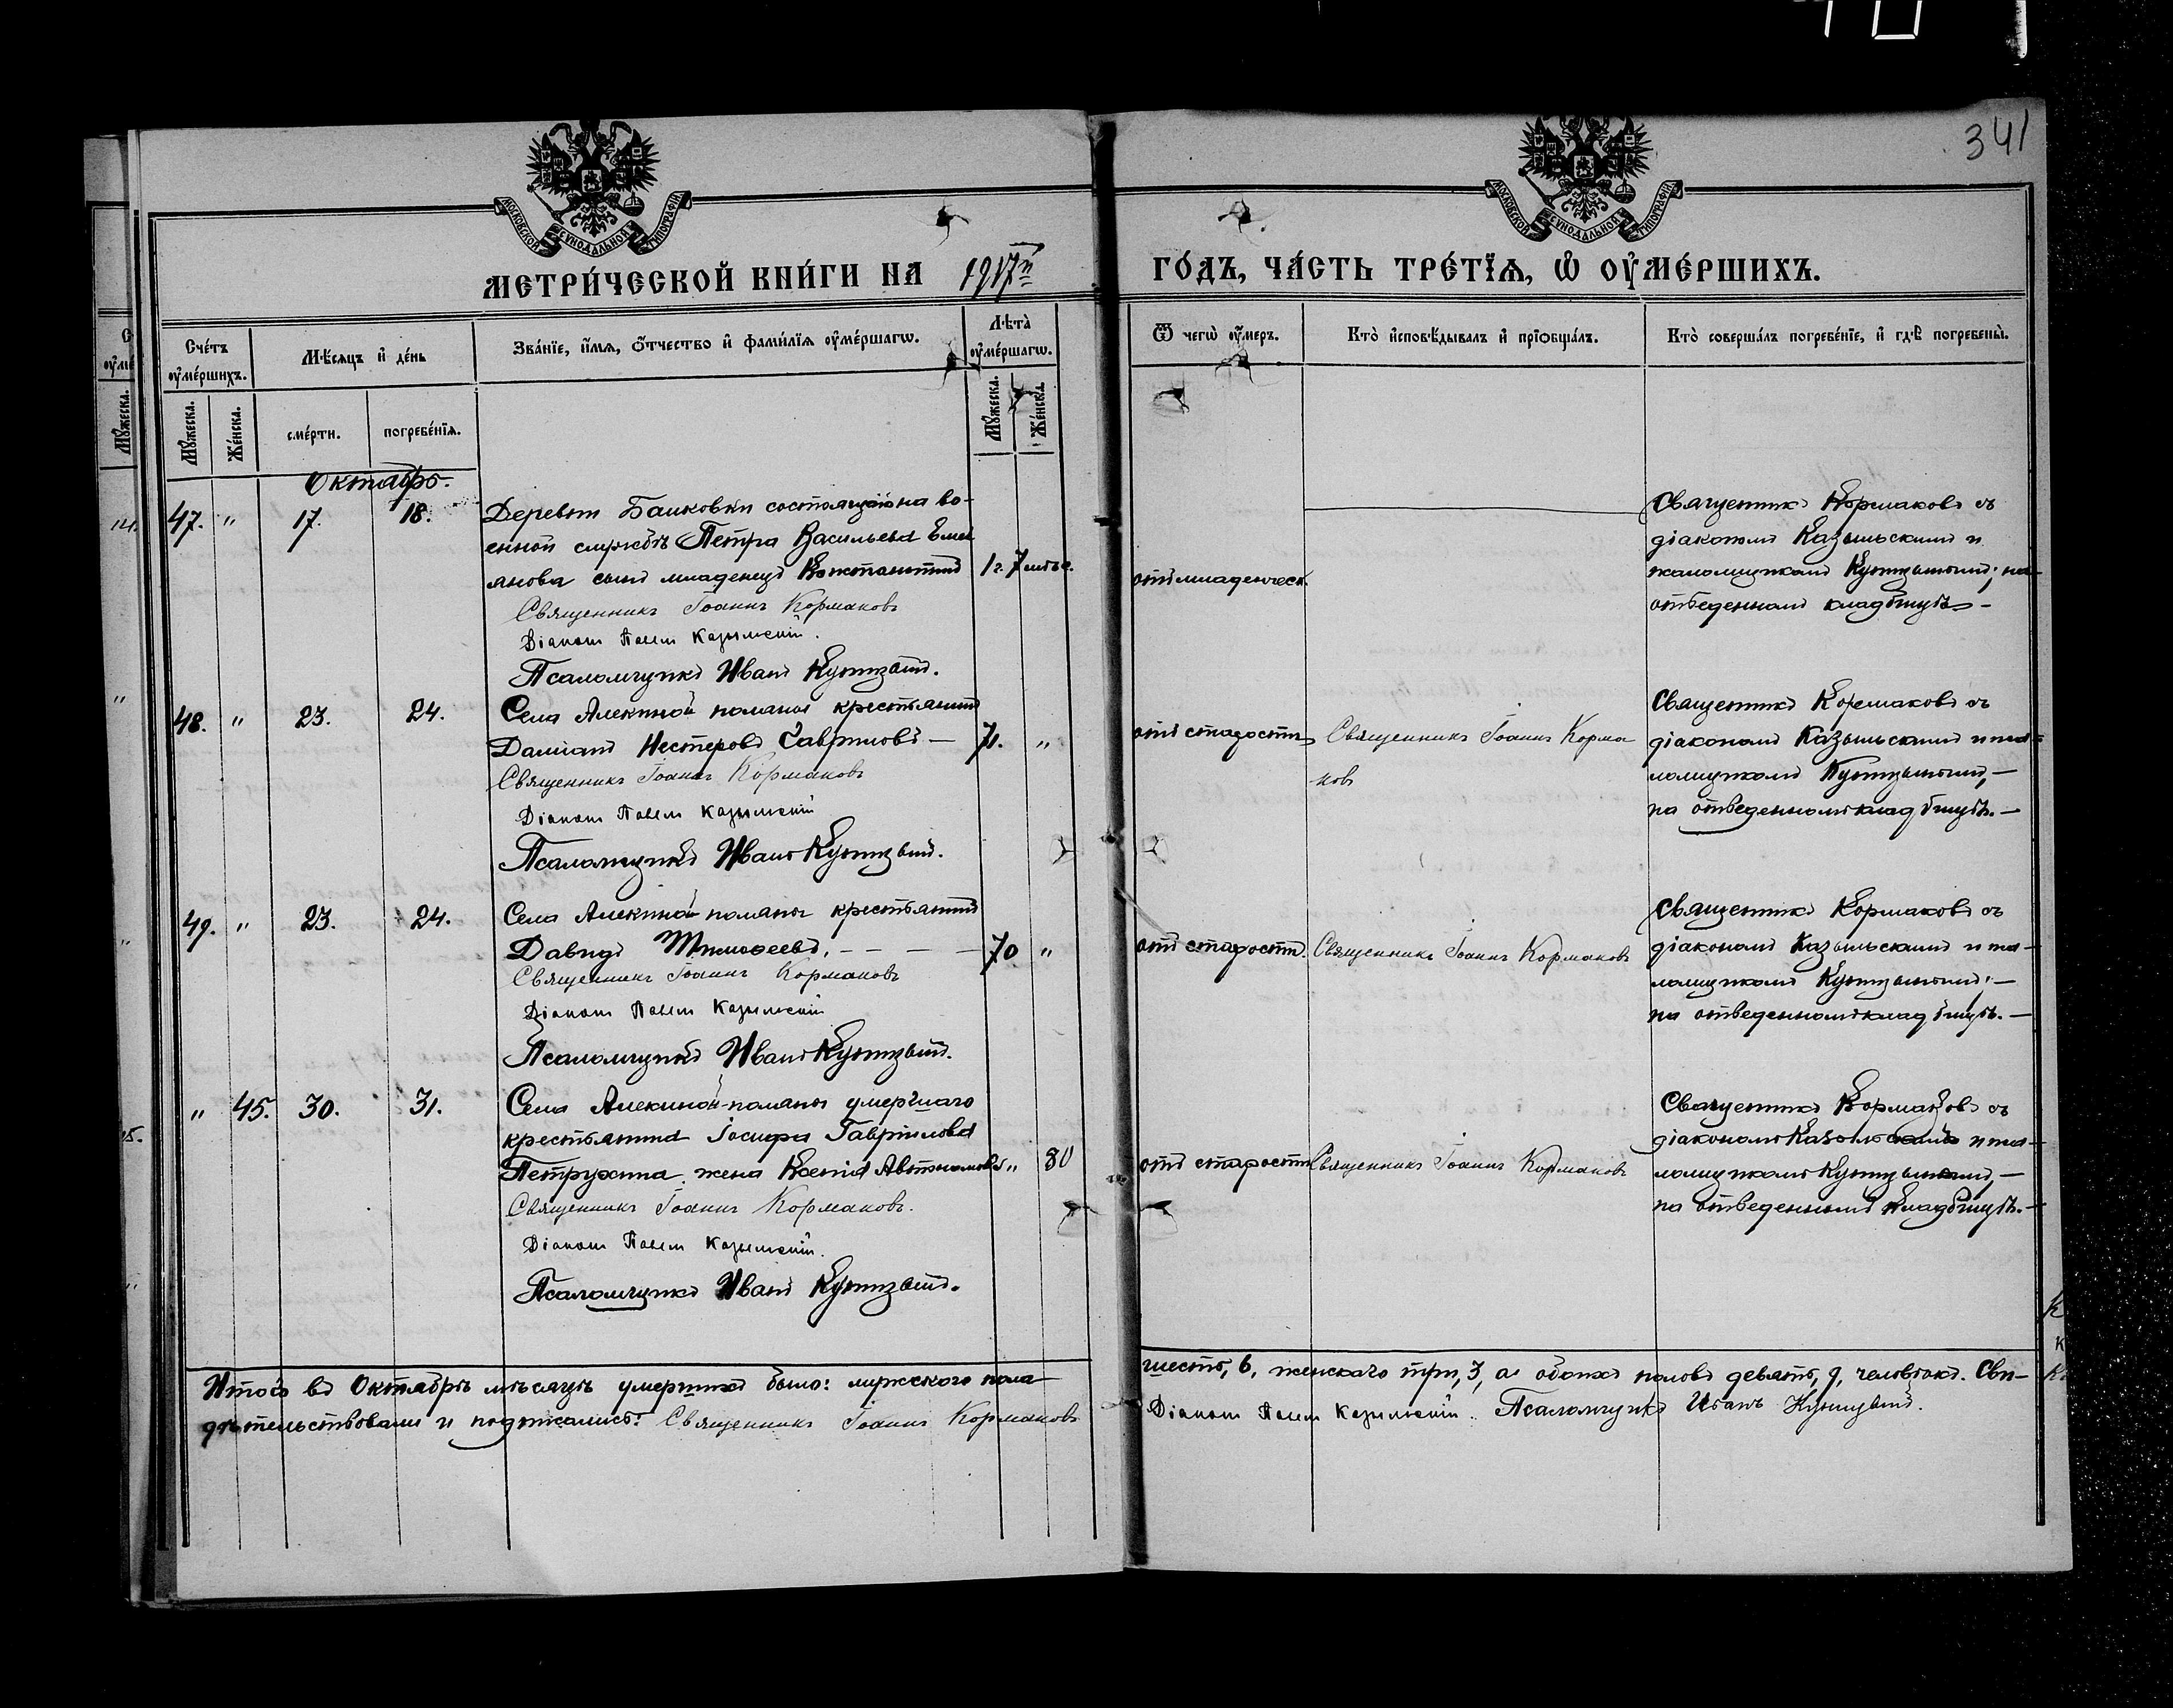 341
МОСКОВСКОЙ СУНОДАЛЬНОЙ ТИПОГРАФІИ
МОСКОВСКОЙ СУНОДАЛЬНОЙ ТИПОГРАФІИ
МЕТРИ́ЧЕСКОЙ КНИ́ГИ НА 1917й ГО́ДЪ, ЧА́СТЬ ТРЕ́ТІЯ, Ѽ ОУ҆МЕ́РШИХЪ.
Сче́тъ оу҆ме́ршихъ.
Мѣ́сяцъ и҆ де́нь
Зва́нїе, и҆́мя, ѻ҆́тчество и҆ фами́лїя оу҆ме́ршагѡ.
Лѣ́та оу҆ме́ршагѡ.
Ѿ чегѡ̀ оу҆́меръ.
Кто̀ и҆сповѣ́дывалъ и҆ прїѡбща́лъ.
Кто̀ соверша́лъ погребе́нїе, и҆ гдѣ̀ погребены̀.
Мꙋ́жеска.
Же́нска.
сме́рти.
погребе́нїя.
Мꙋ́жеска.
Же́нска.
Октябрь.
47. " 17. 18.
Деревни Башковки состоящаго на во-
енной службѣ Петра Васильева Емел
янова сынъ младенецъ Константинъ 1 г. 7 мѣс.
Священникъ Іоаннъ Кормаковъ
Діаконъ Павелъ Казыльскій.
Псаломщикъ Иванъ
отъ младенческ.
Священникъ Кормаковъ съ
діакономъ Казыльскимъ и
псаломщикомъ на
отведенномъ кладбищѣ. -
48. " 23. 24.
Села Алекиной поляны крестьянинъ
Даміанъ Нестеровъ Гавриловъ — 71. "
Священникъ Іоаннъ Кормаковъ
Діаконъ Павелъ Казыльскій
Псаломщикъ Иванъ
отъ старости
Священникъ Іоаннъ Корма
ковъ
Священникъ Кормаковъ съ
діакономъ Казыльскимъ и пса=
ломщикомъ —
на отведенномъ кладбищѣ. —
49. " 23. 24.
Села Алекиной поляны крестьянинъ
Давидъ Тимофеевъ. — — — — 70 "
Священникъ Іоаннъ Кормаковъ
Діаконъ Павелъ Казыльскій
Псаломщикъ Иванъ
отъ старости.
Священникъ Іоаннъ Кормаковъ
Священникъ Кормаковъ съ
діакономъ Казыльскимъ и пса-
ломщикомъ —
на отведенномъ кладбищѣ. —
" 45. 30. 31.
Села Алекиной-поляны умершаго
крестьянина Іосифа Гаврилова
Петрухина жена Ксенія Автономова " 80
Священникъ Іоаннъ Кормаковъ.
Діаконъ Павелъ Казыльскій.
Псаломщикъ Иванъ
отъ старости
Священникъ Іоаннъ Кормаковъ
Священникъ Кормаковъ съ
діакономъ Казыльскимъ и пса-
ломщикомъ —
на отведенномъ кладбищѣ. —
Итого въ Октябрѣ мѣсяцѣ умершихъ было: мужского пола
шесть, 6, женскаго три, 3, а обоихъ половъ девять, 9, человѣкъ. Сви-
дѣтельствовали и подписались: Священникъ Іоаннъ Кормаковъ
Діаконъ Павелъ Казыльскій. Псаломщикъ Иванъ